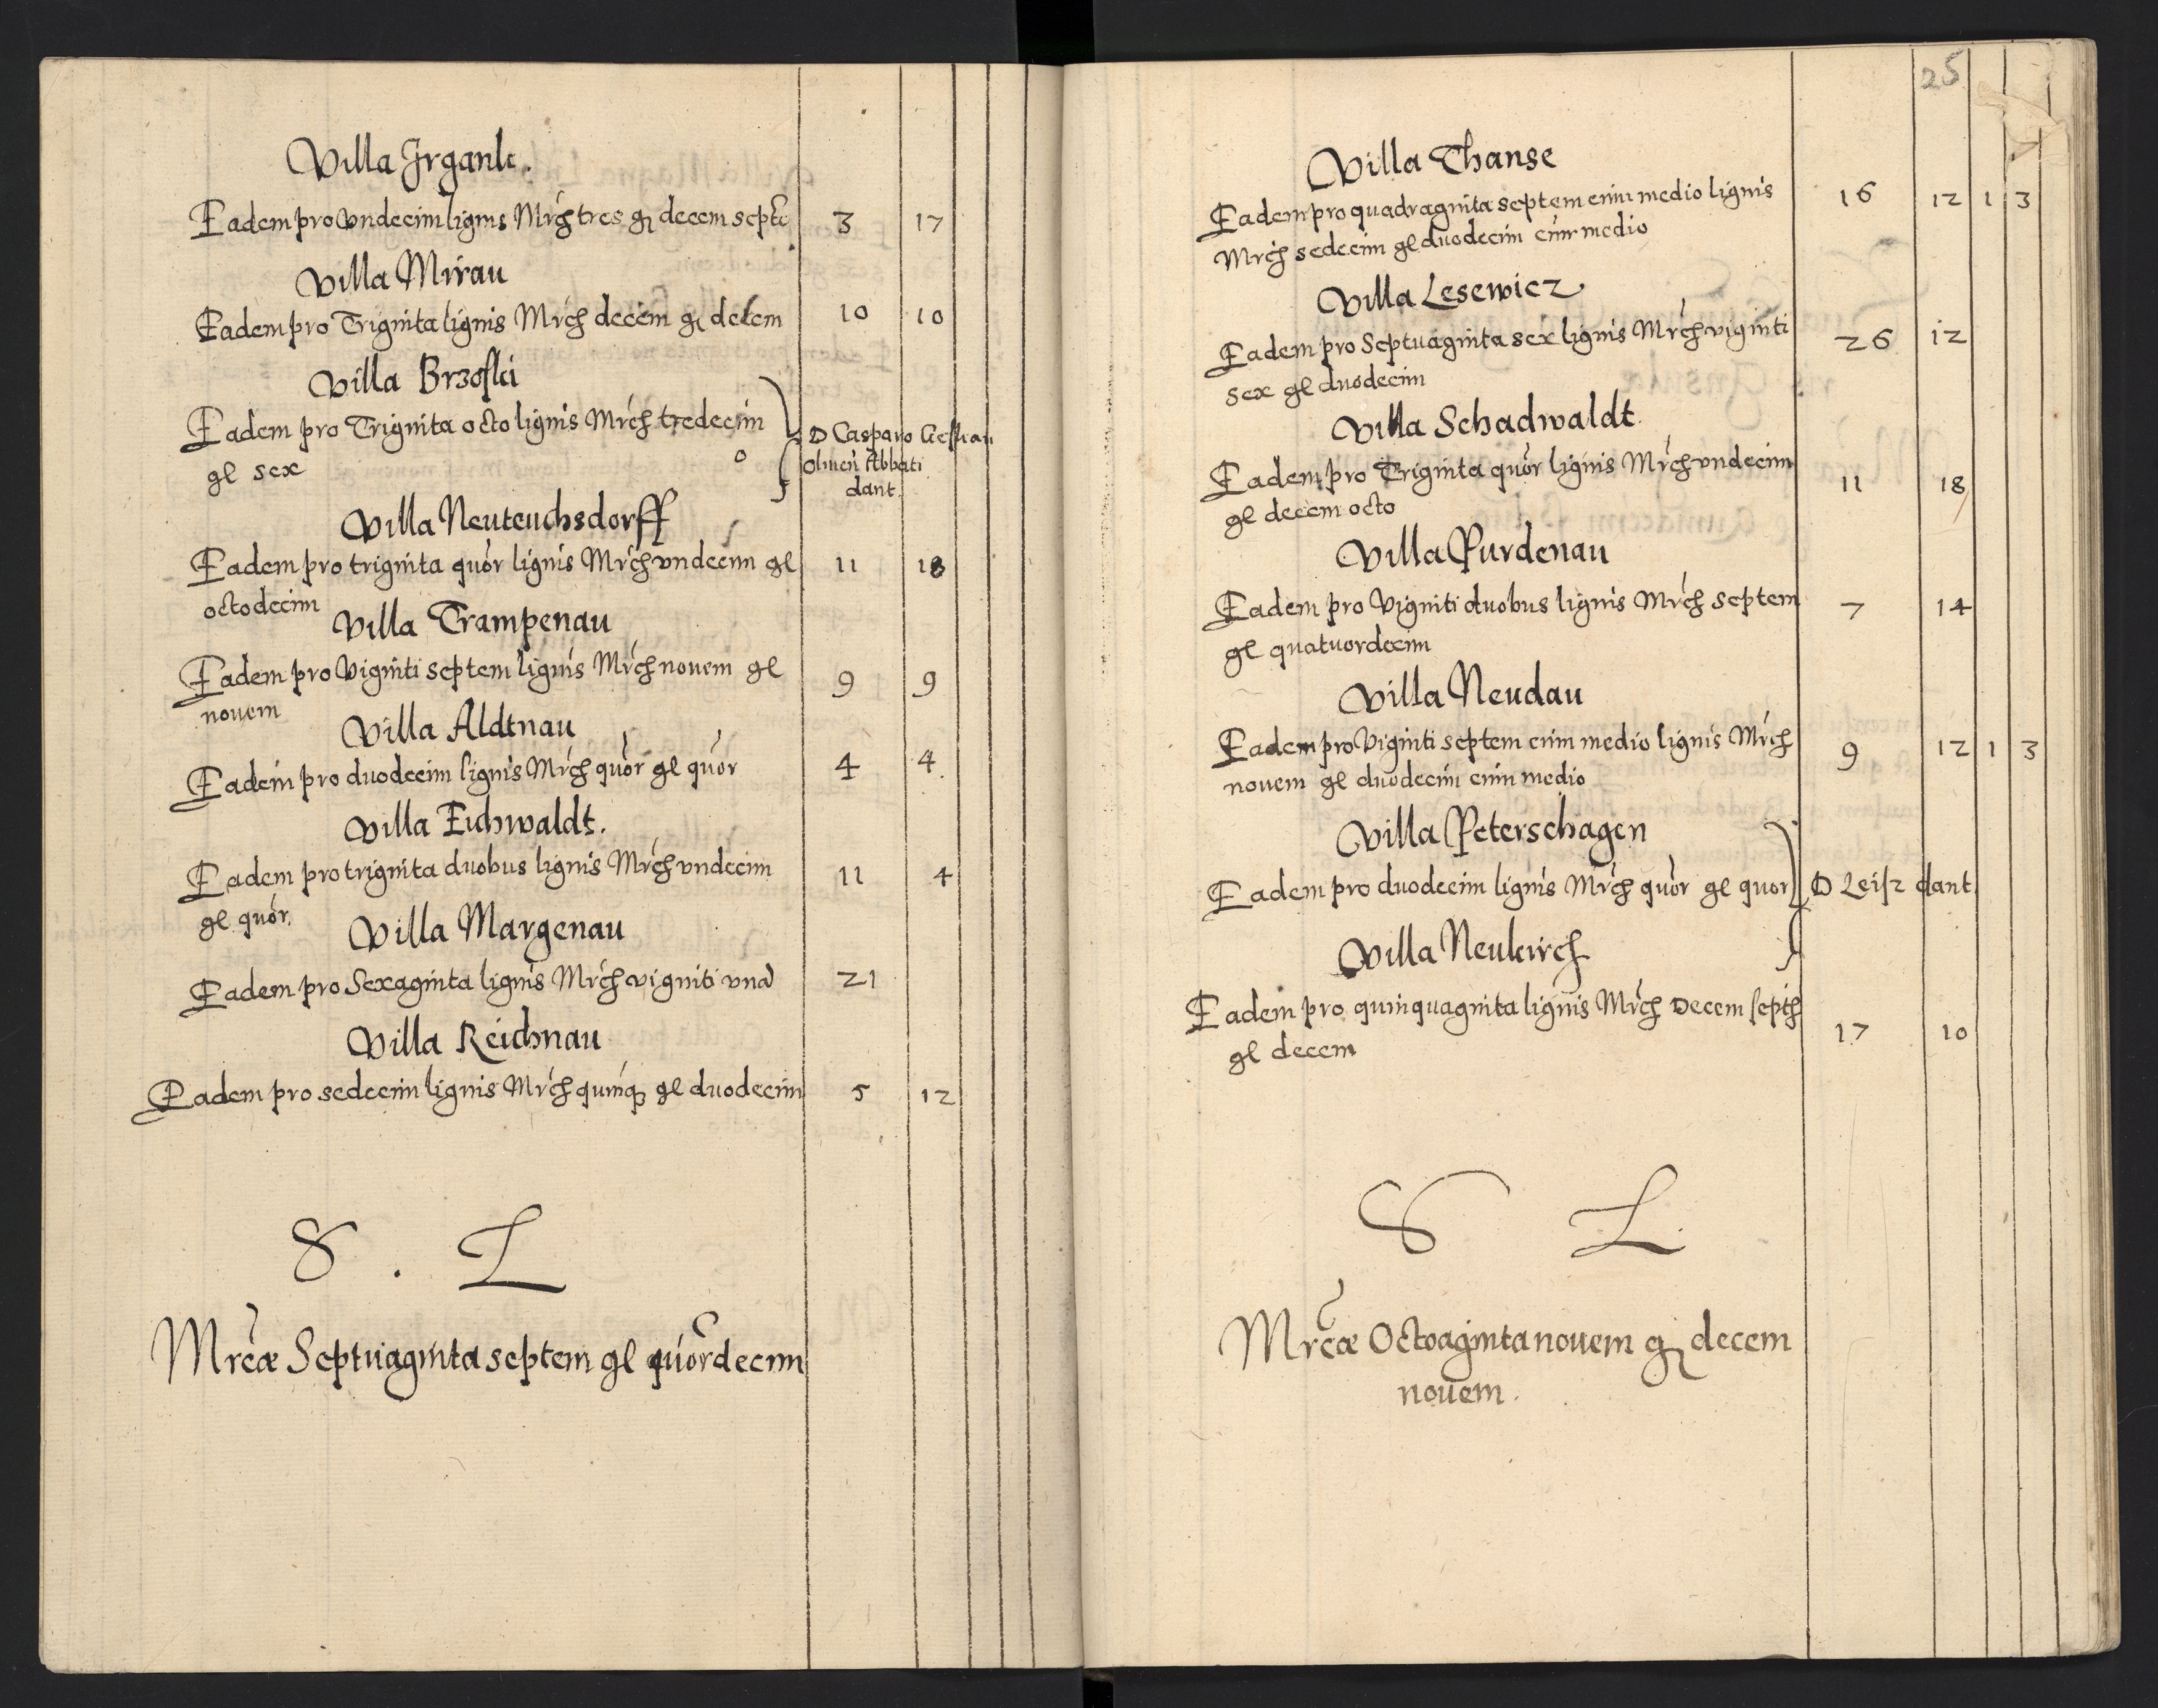 Villa Irganlc.
Eadem pro Vndecim lignis Mrch tres gl decem septe 3 17
Villa Mirau
Eadem pro Triginta lignis Mrch decem gl decem 10 10
Villa Brzoski
Eadem pro Triginta octo lignis Mrch tredecim
gl sex
D Casparo
Oliuen Abbati
dant.
Villa Neuteuchsdorff
Eadem pro triginta quor lignis Mrch vndecim gl 11 18
octodecim
Villa Trampenau
Eadem pro Viginti septem lignis Mrch nouem gl 9 9
nouem
Villa Aldtnau
Eadem pro duodecim lignis Mrch quor gl quor 4 4
Villa Eichwaldt.
Eadem pro triginta duobus lignis Mrch vndecim 11 4
gl quor.
Villa Margenau
Eadem pro Sexaginta lignis Mrch viginti vna 21
Villa Reichnau
Eadem pro sedecim lignis Mrch quinq gl duodecim 5 12
S . L
Mrcæ Septuaginta septem gl quordecim
25
Villa Thanse
Eadem pro quadraginta septem cum medio lignis 16 12 1 3
Mrch sedecim gl duodecim cum medio
Villa Lesewicz
Eadem pro Septuaginta sex lignis Mrch viginti 26 12
sex gl duodecim
Villa Schadwaldt
Eadem pro Triginta quor lignis Mrch vndecim 11 18
gl decem octo
Villa Purdenau
Eadem pro Viginti duobus lignis Mrch septem 7 14
gl quatuordecim
Villa Neudau
Eadem pro Viginti septem cum medio lignis Mrch 9 12 1 3
nouem gl duodecim cum medio
Villa Peterschagen
Eadem pro duodecim lignis Mrch quor gl quor D Leisz dant
Villa Neukirch
Eadem pro quinquaginta lignis Mrch Decem septe 17 10
gl decem
S L
Mrcæ Octoaginta nouem gl decem
nouem.